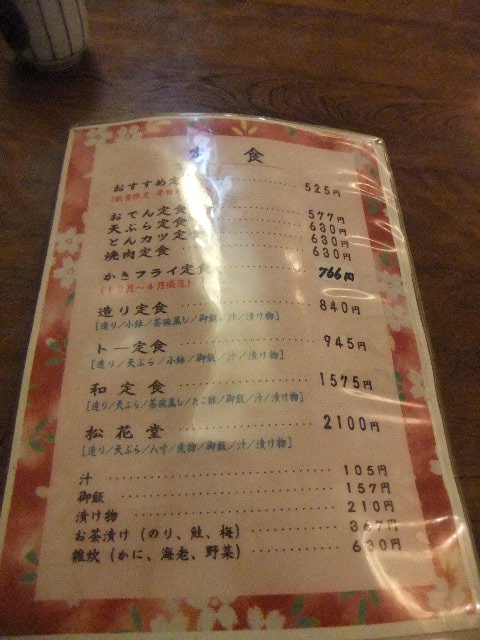 定 食
おすすめ定食 ････ 525円
おでん定食 ････ 577円
天ぷら定食 ････ 630円
とんカツ定食 ････ 630円
焼肉定食 ････ 630円
かきフライ定食 ････ 766円
造り定食 ････ 840円
[造り／小鉢／茶碗蒸し／御飯／汁／漬け物]
ト一定食 ････ 945円
[造り／天ぷら／小鉢／御飯／汁／漬け物]
和定食 ････ 1575円
[造り／天ぷら／茶碗蒸し／たこ酢／御飯／汁／漬け物]
松花堂 ････ 2100円
[造り／天ぷら／八寸／煮物／御飯／汁／漬け物]
汁 ････ 105円
御飯 ････ 157円
漬け物 ････ 210円
お茶漬け（のり、鮭、梅） ････ 367円
雑炊（かに、海老、野菜） ････ 630円